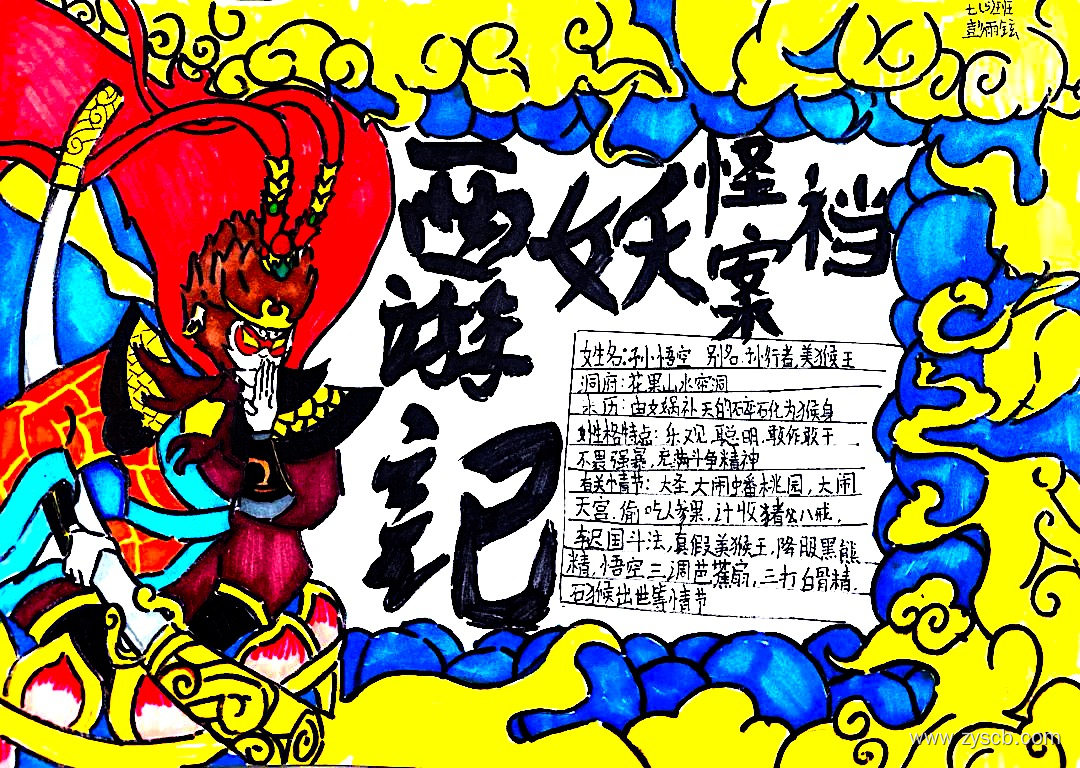 七(5)班
彭雨铉
西游记
妖怪档案
姓名:孙悟空 别名:孙行者,美猴王
洞府:花果山水帘洞
来历:由女娲补天的碎石化为猴身
性格特点:乐观,聪明,敢作敢干
不畏强暴,充满斗争精神
有关情节:大圣大闹蟠桃园,大闹
天宫,偷吃人参果,计收猪公八戒,
车迟国斗法,真假美猴王,降服黑熊
精,悟空三调芭蕉扇,三打白骨精,
石猴出世等情节
www.zyscb.com